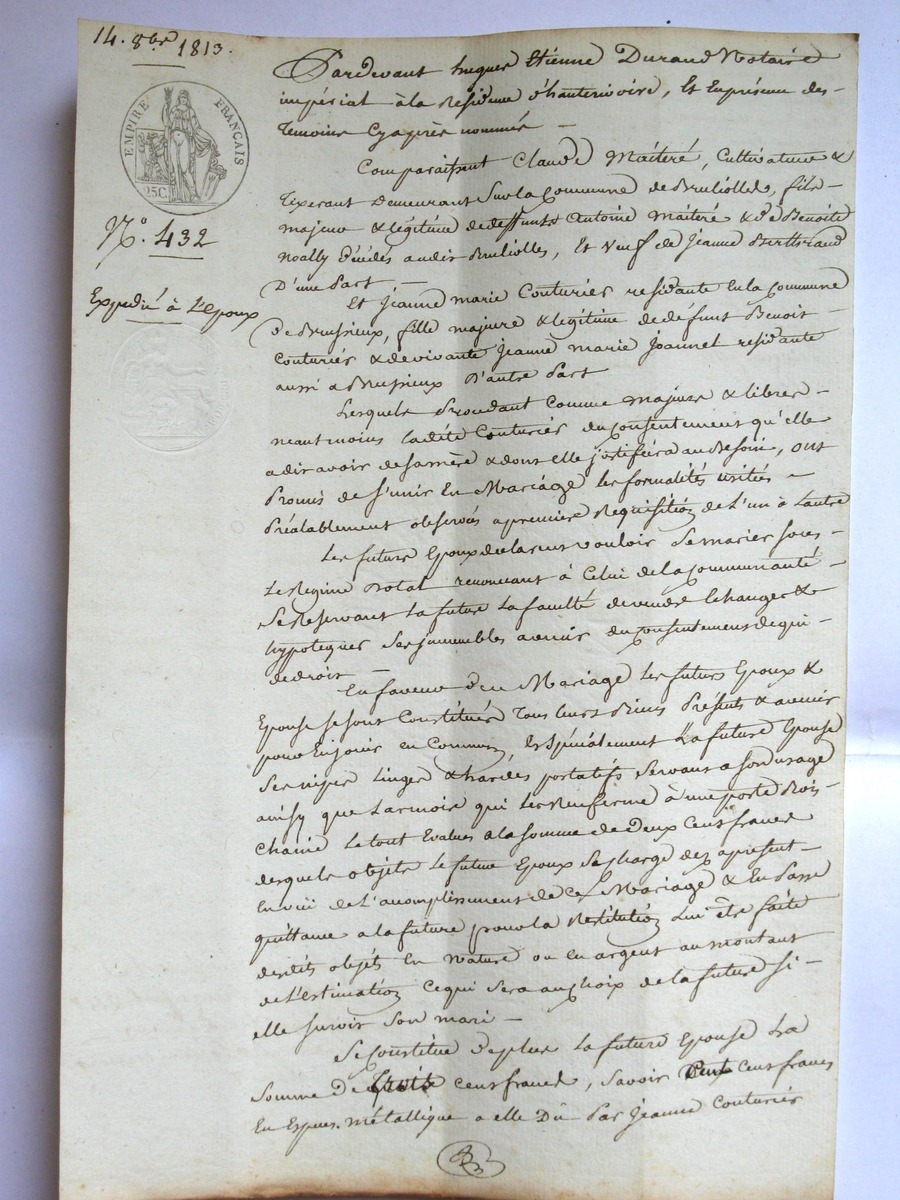 14. 8bre 1813.
EMPIRE FRANÇAIS
25C.
N.° 432
Expedié à L'epoux
Pardevant hugues Etienne Durand Notaire
impérial à la Residence d'hauterivoire, Et En présence des
Temoins Cy après nommés —
Comparaissent Claude Maiteré, Cultivateur &
Tixerant Demeurant Sur la Commune de Brulliolles, fils —
majeur & légitime de deffunts Antoine Maiteré & de Benoite
Noally décédés audit Brulliolles, Et Veuf de Jeanne Berthrand
D'une Part —
Et Jeanne marie Couturier residante En la Commune
de Brussieux, fille majeure & légitime de défunt Benoit —
Couturier & de vivante Jeanne marie Joannet residante
aussi a Brussieux D'autre Part
Lesquels Procedant Comme majeurs & libres —
neantmoins ladite Couturier du Consentement qu'elle
a dit avoir de sa mère & dont elle justifiera au Besoin, ont
Promis de s'unir En Mariage les formalités usitées —
Préalablement observées a premiere Requisition de L'un à Lautre
Les futurs Epoux declarent vouloir Se marier sous —
Le Regime Dotal renoncant à Celui de la Communauté —
Se Reservant La future La faculté de vendre Echanger &
hypotequer Ses immeubles a venir du Consentement de qui —
de droit —
En faveur du Mariage Les futurs Epoux &
Epouse se sont Constitués Tous leurs Biens Présents & avenir
pour En jouir en Commun, Et Spécialement La future Epouse
Ses nipes Linges & hardes portatifs Servant a Son usage
ainsy que Larmoire qui Les Renferme à une porte Bois —
chaine Le tout Evalué a la Somme de Deux Cent francs
desquels objets Le futur Epoux Se charge dez apresent —
En vüe de L'accomplissement de Ce Mariage & En Passe
quittance a la future pour la Restitution Lui être faite
desdits objets En Nature ou En argent au montant
de L'estimation Ce qui Sera au choix de la future Si —
elle survit Son mari —
Se Constitue de plus La future Epouse La
Somme de trois cent francs, savoir Cent francs
En Espece métallique a elle Dû Par Jeanne Couturier